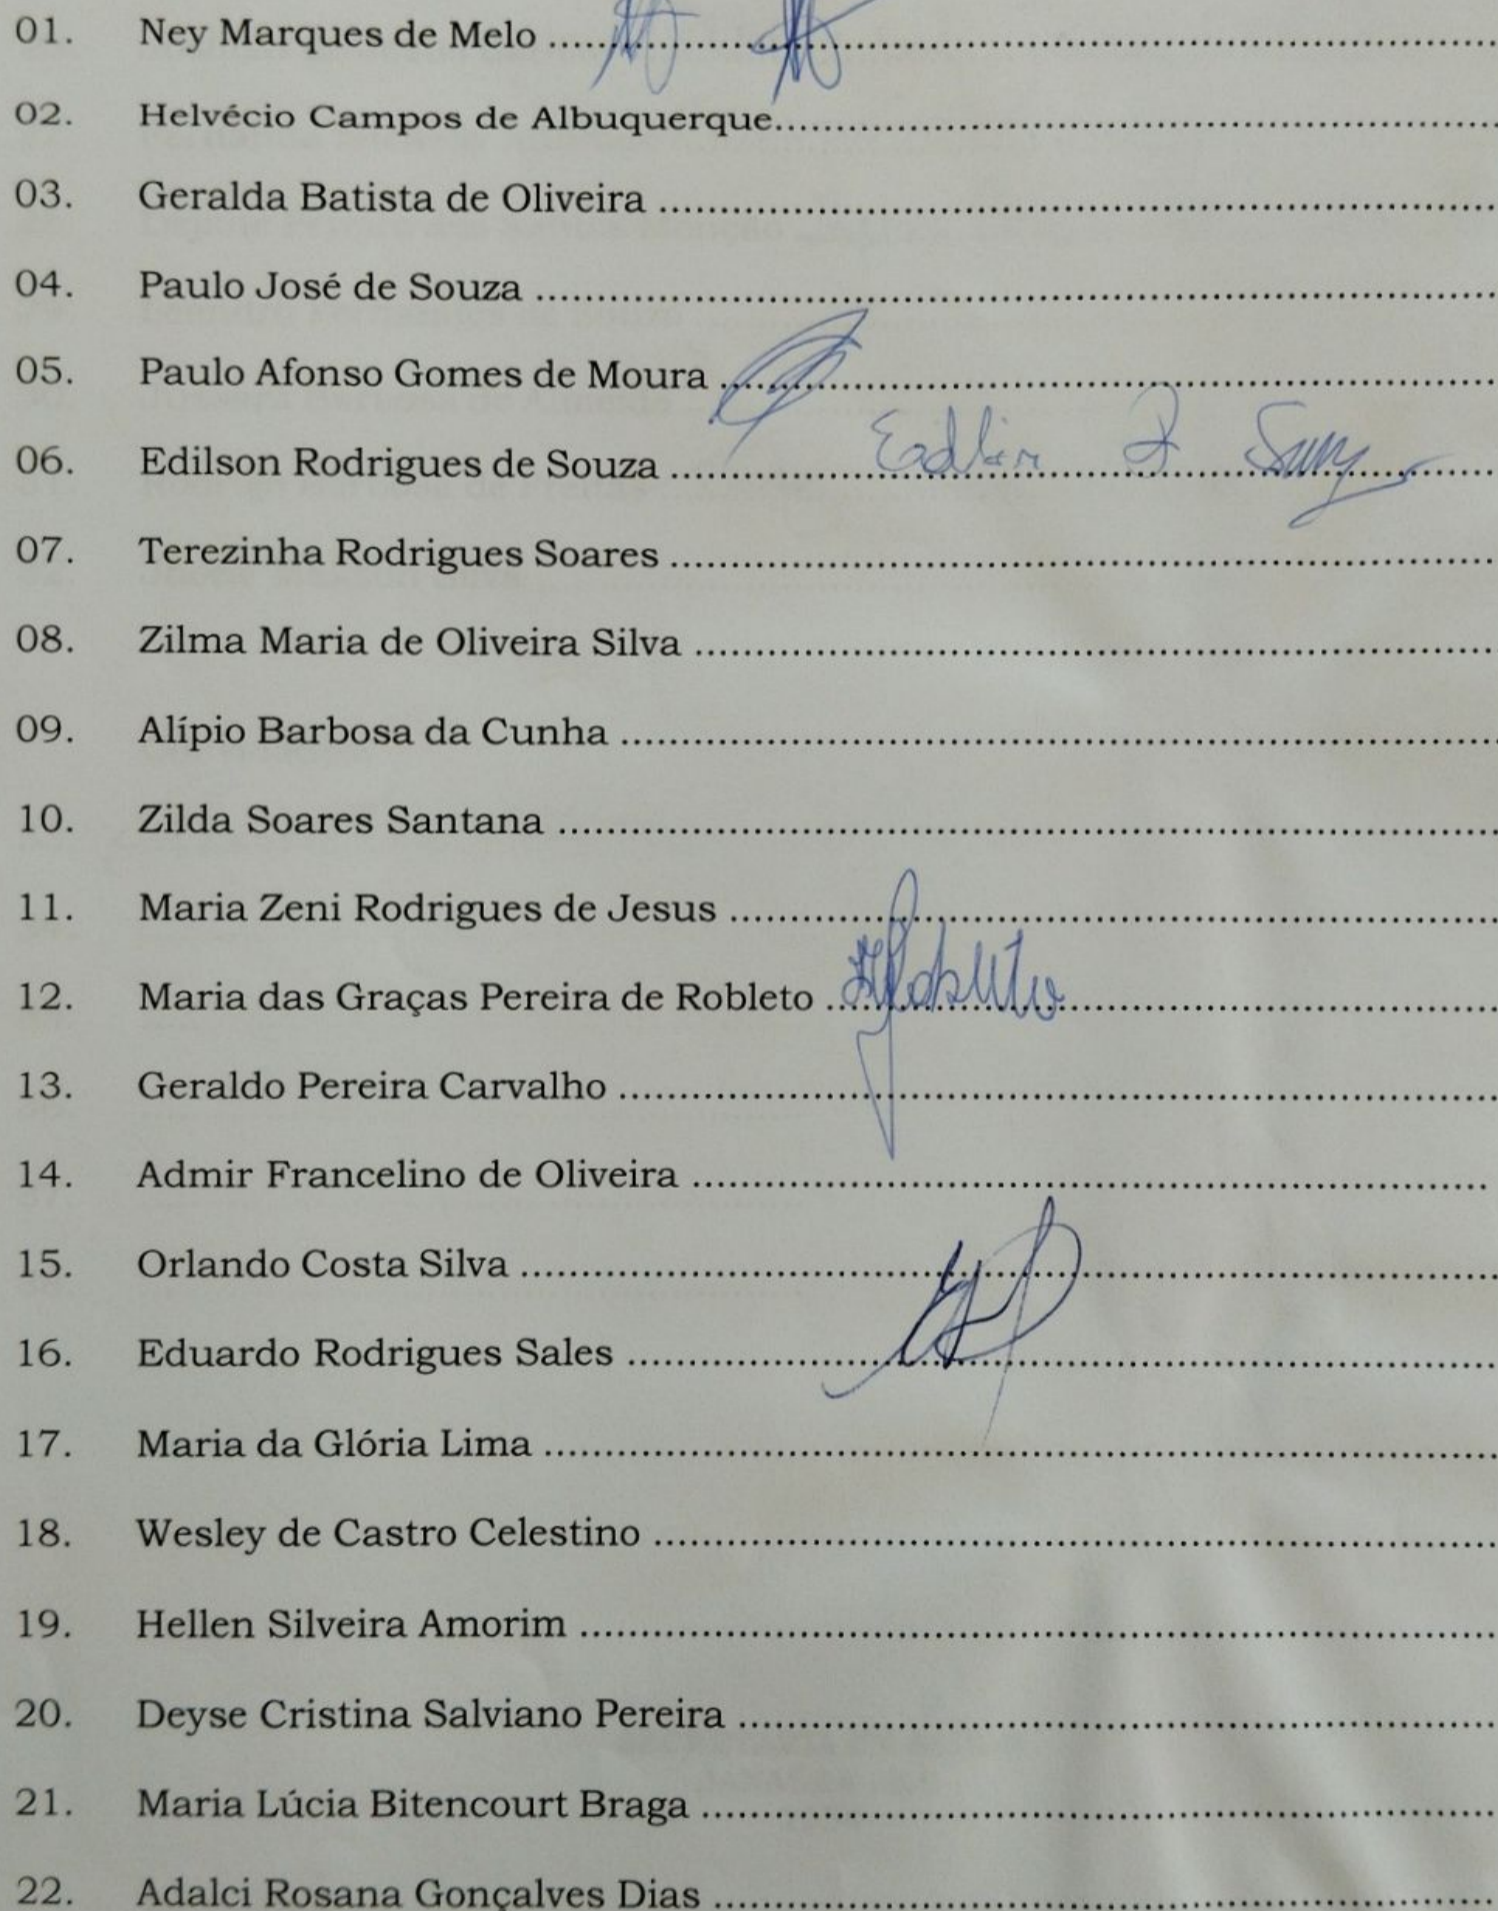 01. Ney Marques de Melo
02. Helvécio Campos de Albuquerque
03. Geralda Batista de Oliveira
04. Paulo José de Souza
05. Paulo Afonso Gomes de Moura
06. Edilson Rodrigues de Souza
07. Terezinha Rodrigues Soares
08. Zilma Maria de Oliveira Silva
09. Alípio Barbosa da Cunha
10. Zilda Soares Santana
11. Maria Zeni Rodrigues de Jesus
12. Maria das Graças Pereira de Robleto
13. Geraldo Pereira Carvalho
14. Admir Francelino de Oliveira
15. Orlando Costa Silva
16. Eduardo Rodrigues Sales
17. Maria da Glória Lima
18. Wesley de Castro Celestino
19. Hellen Silveira Amorim
20. Deyse Cristina Salviano Pereira
21. Maria Lúcia Bitencourt Braga
22. Adalci Rosana Gonçalves Dias